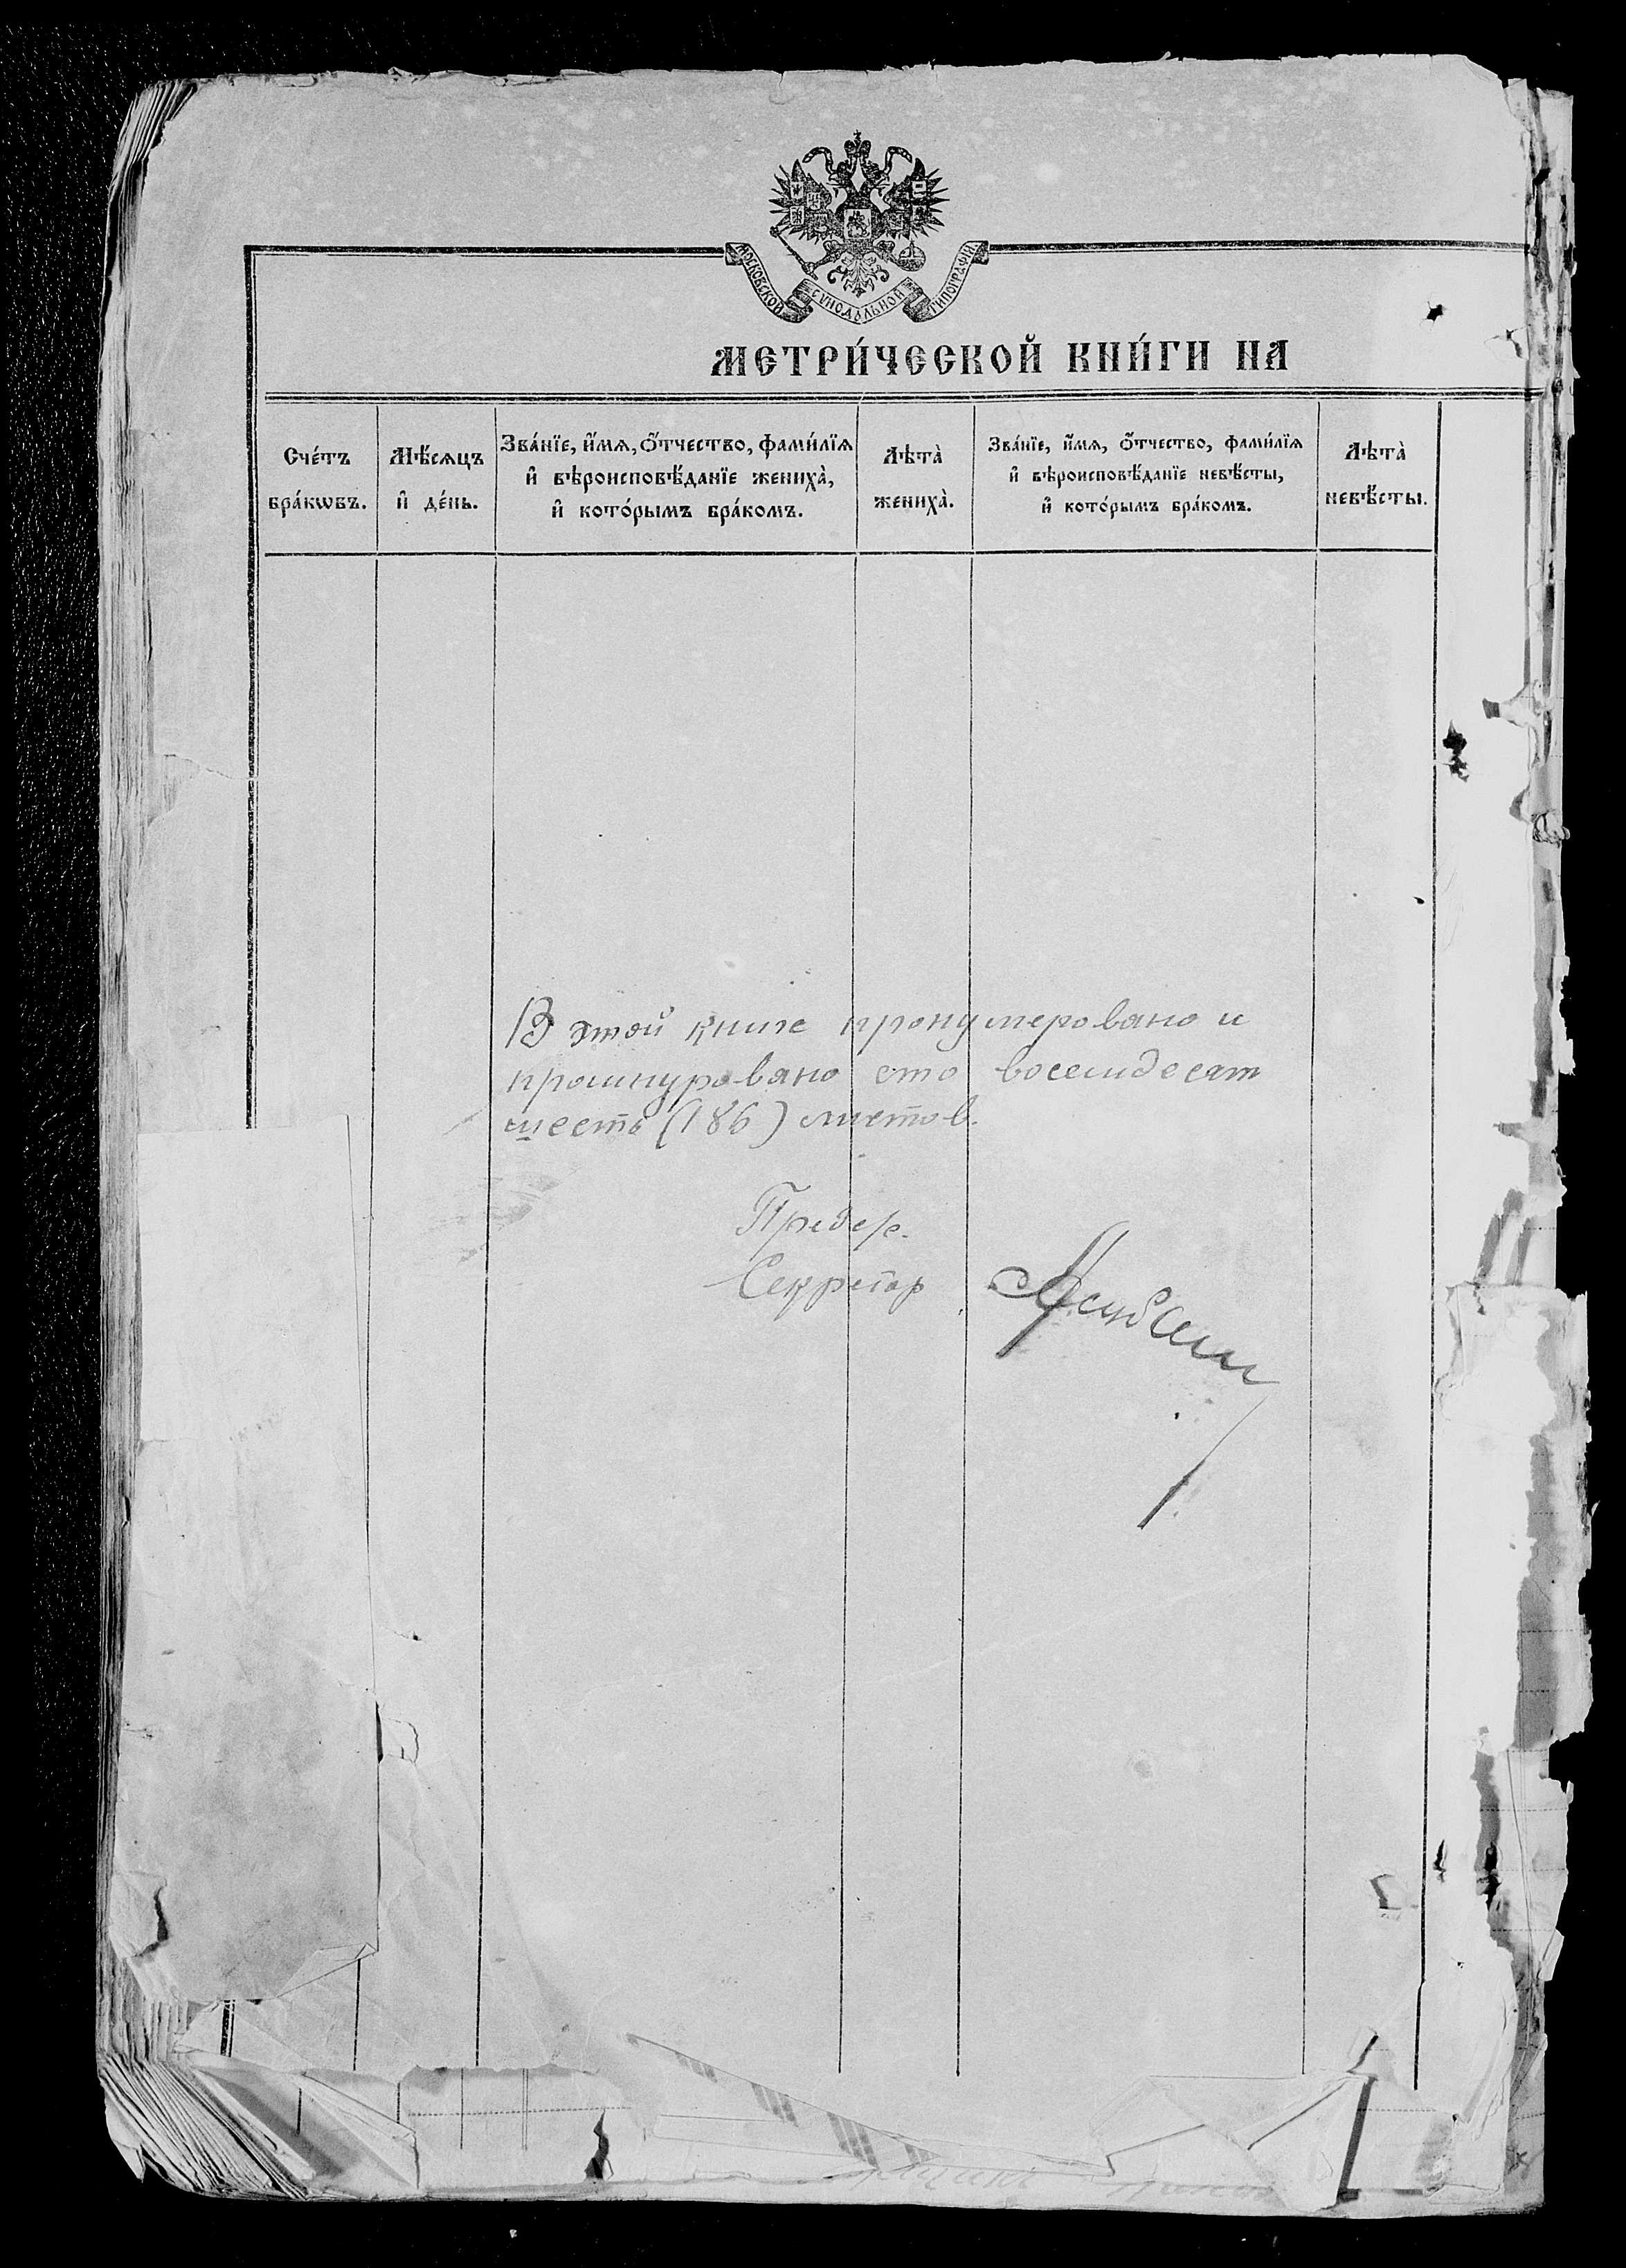 МОСКОВСКОЙ СУНОДАЛЬНОЙ ТИПОГРАФІИ
МЕТРИ́ЧЕСКОЙ КНИ́ГИ НА
Сче́тъ
бра́кѡвъ.
Мѣ́сѧцъ
и҆ де́нь.
Зва́нїе, и҆́мѧ, ѻ҆́тчество, фами́лїѧ
и҆ вѣроисповѣ́данїе жениха̀,
и҆ кото́рымъ бра́комъ.
Лѣта̀
жениха̀.
Зва́нїе, и҆́мѧ, ѻ҆́тчество, фами́лїѧ
и҆ вѣроисповѣ́данїе невѣ́сты,
и҆ кото́рымъ бра́комъ.
Лѣта̀
невѣ́сты.
В этой книге пронумеровано и
прошнуровано сто восемьдесят
шесть (186) листов.
Предс/с.
Секретар